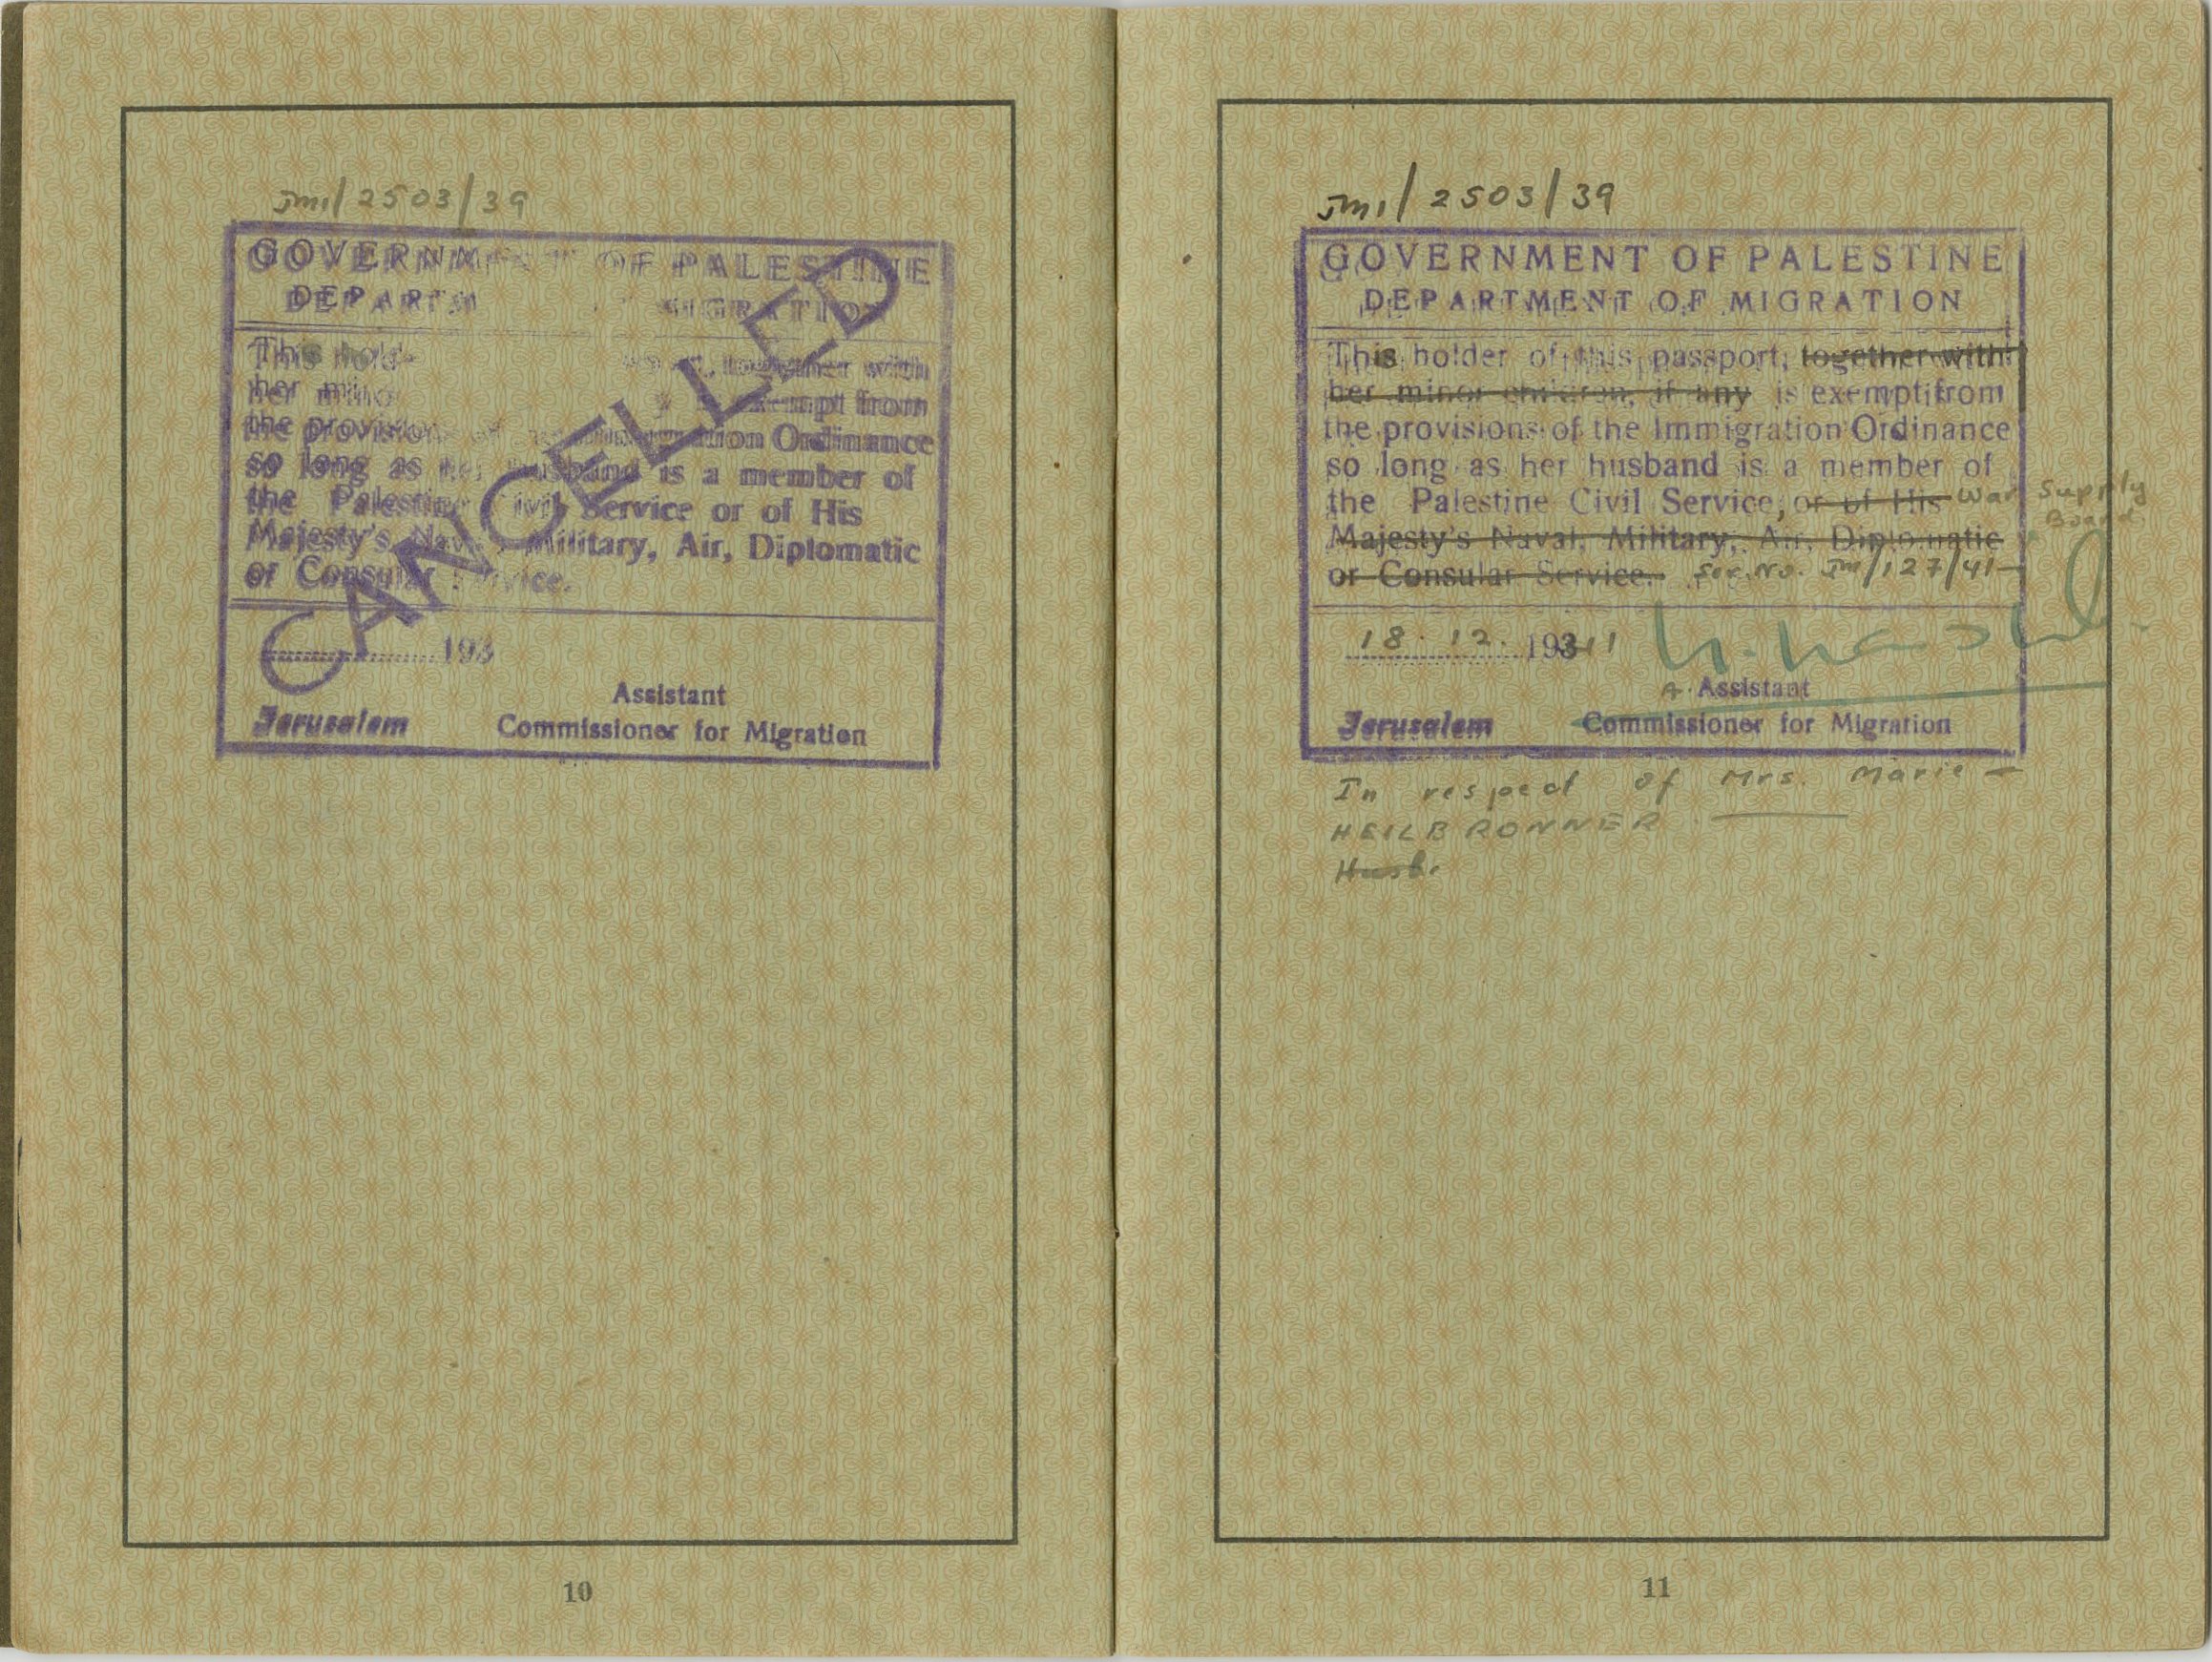 Jm1/2503/39
GOVERNMENT OF PALESTINE
DEPARTM MIGRATION
CANCELLED
This hold together with
her mino exempt from
the provisions of Immigration Ordinance
so long as her husband is a member of
the Palestine Civil Service or of His
Majesty's Naval, Military, Air, Diplomatic
or Consular Service.
193
Assistant
Jerusalem Commissioner for Migration
10
Jm1/2503/39
GOVERNMENT OF PALESTINE
DEPARTMENT OF MIGRATION
This holder of this passport, together with
her minor children, if any is exempt from
the provisions of the Immigration Ordinance
so long as her husband is a member of
the Palestine Civil Service, or of His War Supply
Board
Majesty's Naval, Military, Air, Diplomatic
or Consular Service. Ser. No. Jm/127/41
18. 12. 1941
A. Assistant
Jerusalem Commissioner for Migration
In respect of Mrs. Marie
HEILBRONNER
Husb.
11